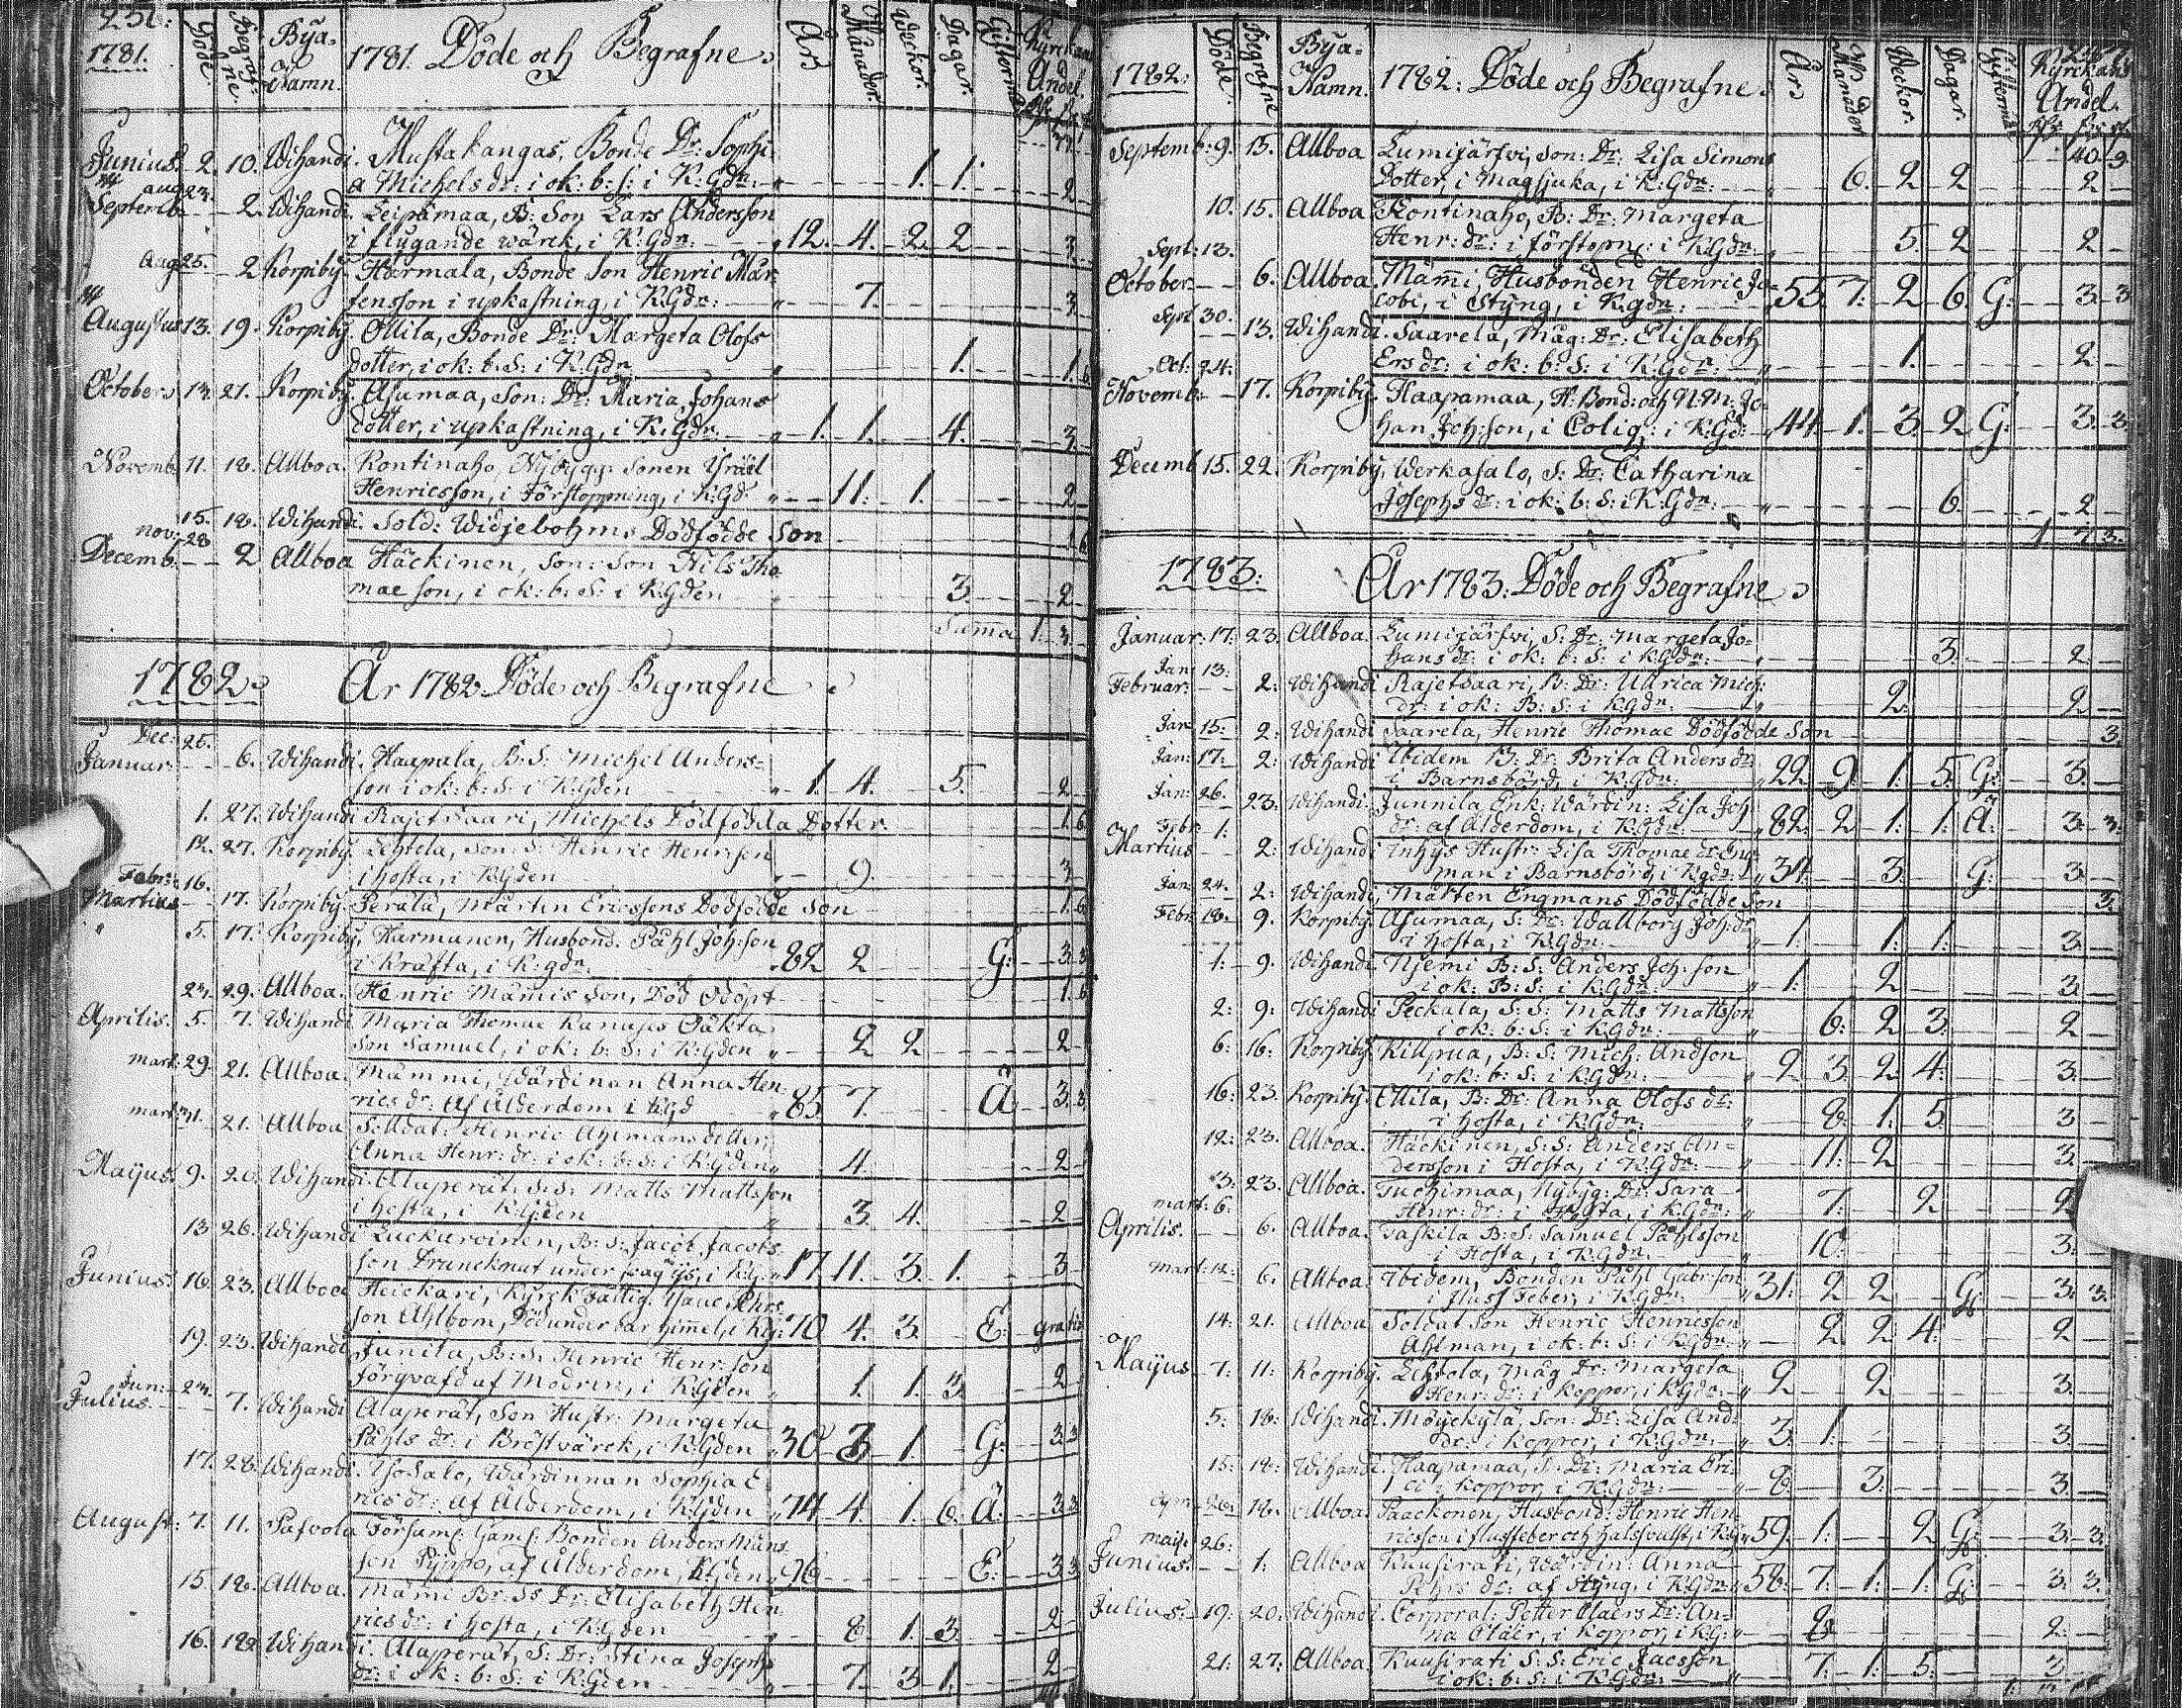 1781. Döde. Begrafne. Bya Namn. 1781. Döde och Begrafne År Månader. Weckor. Dagar. Kyrckans Andel.
Junius. 2. 10. Wihandi. Mustakangas, Bonde Dr: Sophi-
a Michels dr: i ok: b: s: i K:Gdn: 1. 1. 2
aug 23.
Septemb. 2. Wihandi. Leipämaa, B: Son Lars Andersson
i flygande wärck, i K:Gdn: 12. 4. 2. 2 3.
Aug 25. 2 Korpiby. Harmala, Bonde Son Henric Mår-
tensson i upkastning, i K:Gdn: 7. 3.
Augustus 13. 19. Korpiby. Ollila, Bonde Dr: Margeta Olofs
dotter, i ok: b: S: i K:Gdn 1. 1. 6
October 13. 21. Korpiby. Asumaa, Son: Dr: Maria Johans
dotter, i upkastning, i K:Gdn. 1. 1. 4. 3.
Novemb. 11. 18. Allboa. Kontinaho, Nybygg: Sonen Israël
Henricsson, i Förstoppning, i K:Gdn 11. 1. 2
15. 18. Wihandi. Sold: Widjebohms Dödfödde Son 1. 6
nov: 28
Decemb. 2 Allboa Häckinen, Son: Son Nils Tho-
mae son, i ok: b: S: i K:Gden 3. 2
Summa 1. 3.
1782. År 1782 Döde och Begrafne
Dec: 25.
Januar. 6. Wihandi. Haapala, B: S: Michel Anders-
son i ok: b: s: i K:Gden 1. 4. 5. 2
1. 27. Wihandi Rajetsaari, Michels Dödfödda Dotter. 1. 6
12. 27. Korpiby. Lehtela, Son: S: Henric Henr:son
i hosta, i K:Gden 9. 3
Febr: 16.
Martius 17. Korpiby. Perälä, Mårtin Ericssons Dödfödde Son 1. 6
5. 17. Korpiby. Harmunen, Husbond. Påhl Joh:son
i Kräfta, i K:gdn. 82 2 G. 3. 3
23. 29. Allboa. Henric Mämmis Son, Död Odöpt 1. 6
Aprilis. 5. 7. Wihandi Maria Thomae Kanajas Oäkta
Son Samuel, i ok: b: S: i K:Gden 2 2 2
mart: 29. 21. Allboa. Mämmi, Wärdinan Anna Hen-
rics dr: Af Ålderdom i K:Gd 85 7 Ä. 3. 3
mart: 31. 21. Allboa Solldat: Henric Ahlmans dotter,
Anna Henr: dr: i ok: b: s: i K:Gden 4. 2
Maijus. 9. 20. Wihandi. Alaperät. S: S: Matts Mattsson
i hosta, i K:Gden 3. 4. 2
13. 26. Wihandi Luckuroinen, B: S: Jacob Jacobs
son Druncknat under i K:G 17 11. 3. 1. 3
Junius. 16. 23. Allboa Heickari, Kyrck Fattig.
son Ahlbom, Död under bar himmel, i K:G: 70 4. 3. E. gratis
19. 23. Wihandi Junila, B: S: Henric Henr:son
förqvafd af Modren, i K:Gden 1. 1. 3. 2
Jun: 23.
Julius. 7. Wihandi Alaperät, Son Hustr: Margeta
Påhls dr: i Bröstvärck, i K:Gden 30 3 1. G. 3. 3
17. 28. Wihandi. Isosalo, Wärdinnan Sophia E-
rics dr: Af Ålderdom, i K:Gden 74 4. 1. 6. Ä. 3. 3
August. 7. 11. Pafvola Församl: Gaml: Bonden Anders Måns
son Pyppo, af Ålderdom, K:Gden 96 E. 3. 3
15. 18. Allboa. Mämi Br: Ss Dr: Elisabeth Hen-
rics dr: i hosta, i K:Gden 8 1. 3. 2
16. 18. Wihandi. Alaperät, S: Dr: Stina Josephs
dr: i ok: b: S: i K:Gden 7. 3 1. 2
1782. Döde. Begrafne Bya-Namn. 1782: Döde och Begrafne År Månader Weckor. Dagar. Kyrckans Andel.
Septemb: 9. 15. Allboa Lumijärfwi, Son: Dr: Lisa Simons
Dotter, i Magsjuka, i K:Gdn: 6. 2 2 2
10. 15. Allboa Kontinaho, B: Dr: Margeta
Henr: dr: i förstopn: i K:Gdn 5. 2 2
Sept: 13.
October. 6. Allboa. Mämi, Husbonden Henric Ja-
cobi, i Styng, i K:gdn: 55. 7. 2 6. G: 3. 3
Sept 30. 13. Wihandi. Saarela, Måg: Dr: Elisabeth
Ers dr: i ok: b: S: i K:Gdn: 1. 2
Oct: 24.
Novemb: 17. Korpiby. Haapamaa, H: Bond: och N:M: Jo-
han Joh:son, i Colig: i K:Gd: 44 1. 3. 2 G: 3. 3
Decemb 15. 22. Korpiby, Werkasalo, S: Dr: Catharina
Josephs dr: i ok: b: S: i K:Gdn: 6. 2
1 7 3.
1783: År 1783: Döde och Begrafne
Januar: 17: 23. Allboa. Lumijärfwi, S: Dr: Margeta Jo-
hans dr: i ok: b: S: i K:Gdn: 3. 2.
Jan: 13:
Februar: 2: Wihandi Rajetsaari, B: Dr: Ullrica Mich:
dr: i ok: B: S: i K:Gdn. 2. 2
Jan: 15: 2: Wihandi Saarela, Henric Thomae Dödfödde Son 3.
Jan: 17: 2: Wihandi Ibidem B: Dr: Brita Anders dr:
i Barnsbörd, i K:Gdn: 22 9. 1. 5. G: 3.
Jan: 26. 23. Wihandi. Junnila Enk: Wärdin: Lisa Joh
dr: af Ålderdom, i K:Gdn: 82. 2 1. 1. Ä: 3. 3.
Febr: 1:
Martius 2: Wihandi Inhys Hustr: Lisa Thomae dr Eng-
man i Barnsbörd, i K:gdn: 34. 3. G: 3.
Jan: 24. 2: Wihandi, Mårten Engmans Dödfödde Son 3.
Febr: 18. 9. Korpiby. Asumaa, S: Dr: Wallborg Joh: dr
i hosta, i K:Gdn: 1: 1: 1: 3.
1: 9. Wihandi. Njemi B: S: Anders Joh:son
i ok: B: S: i K:Gdn: 1: 2 3.
2: 9: Wihandi Peckala, S: S: Matts Mattsson
i ok: b: S: i K:Gdn: 6: 2 3. 2
6: 16: Korpiby. Killprua, B: S: Mich: Andson
i ok: b: S: i K:Gdn: 2 3. 2 4. 3.
16: 23. Korpiby. Ollila, B: Dr: Anna Olofs dr:
i hosta, i K:Gdn: 8. 1. 5. 3
12: 23. Allboa. Häckinen, S: S: Anders An-
dersson i Hosta, i K:Gdn: 11. 2 3.
13: 23. Allboa. Tuchimaa, Nybyg: Dr: Sara
Henr: dr: i Hosta, i K:Gdn: 7. 2 2
mart: 6.
Aprilis. 6. Allboa. Taskila B: S: Samuel Påhlsson
i Hosta, i K:Gdn: 10. 3.
mart: 12: 6. Allboa. Ibidem, Bonden Påhl Gabr:son
i fluss Feber, i K:Gdn: 31: 2 2 G: 3. 3.
14: 21. Allboa Soldat Son Henric Henricsson
Ahlman, i ok: b: S: i K:Gdn: 2 2 4. 2
Maijus 7: 11: Korpiby. Lehtola, Måg Dr: Margeta
Henr: dr: i koppor, i K:Gdn: 2 2 3.
5: 18: Wihandi. Möyckylä, Son: Dr: Lisa And:
dr: i koppor, i K:Gdn: 3. 1. 3.
15: 18: Wihandi. Haapamaa, S: Dr: Maria Eri-
ci i koppor, i K:Gdn: 8. 3. 3.
18. Allboa. Paackonen, Husbond: Henric Hen-
ricsson i flussfeber och halssvullst, i K:G: 59. 1. 2 G: 3. 3.
maij: 26:
Junius. 1. Allboa Kuusirati, Wärdin: Anna
Pehrs dr: af Styng, i K:Gdn: 58. 7. 1: 1: G: 3. 3.
Julius: 19: 20: Wihandi. Corporal: Petter Claers Dr: An-
na Claer, i koppor, i K:G: 2. 2.
21: 27: Allboa. Kuusirati S: S: Eric Jacsson
i ok: b: S: i K:Gdn: 7. 1. 5. 3